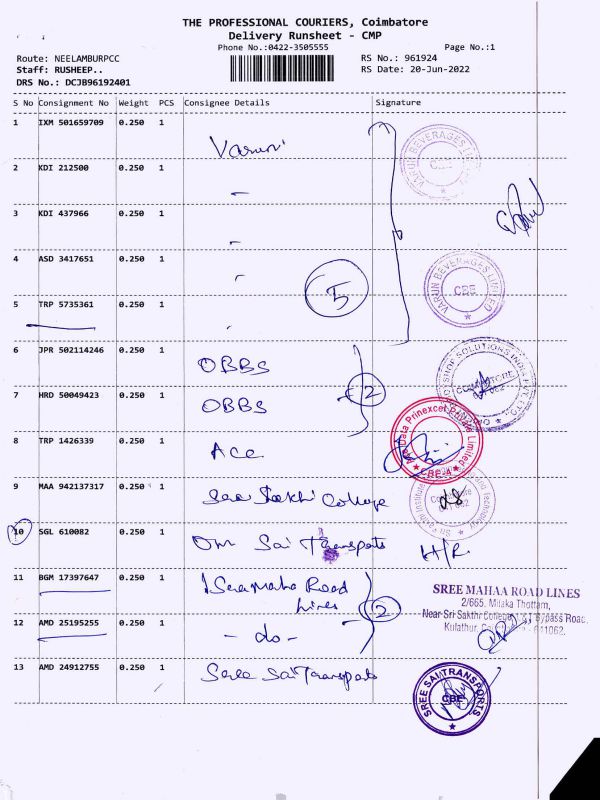 THE PROFESSIONAL COURIERS, Coimbatore
Delivery Runsheet - CMP
Phone No.:0422-3505555
Page No.:1
Route: NEELAMBURPCC
RS No.: 961924
Staff: RUSHEEP..
RS Date: 20-Jun-2022
DRS No.: DCJB96192401
S No Consignment No Weight PCS Consignee Details Signature
1 IXM 501659709 0.250 1 Varun
VARUN BEVERAGES LIMITED CBE
2 KDI 212500 0.250 1 -
3 KDI 437966 0.250 1 -
4 ASD 3417651 0.250 1 -
5
VARUN BEVERAGES LIMITED CBE
5 TRP 5735361 0.250 1 -
6 JPR 502114246 0.250 1 OBBS
2
7 HRD 50049423 0.250 1 OBBS
8 TRP 1426339 0.250 1 Ace
Prinexcel Private Limited CBE-
9 MAA 942137317 0.250 1 Sree Sakthi College
10 SGL 610082 0.250 1 Om Sai Transports H/R
11 BGM 17397647 0.250 1 Sree Maha Road
Lines
2
SREE MAHAA ROAD LINES
2/665, Milaka Thottam,
Near Sri Sakthi College, Bypass Road,
Kulathur, 641062.
12 AMD 25195255 0.250 1 - do -
13 AMD 24912755 0.250 1 Sree Sai Transports
SREE SAI TRANSPORTS CBE